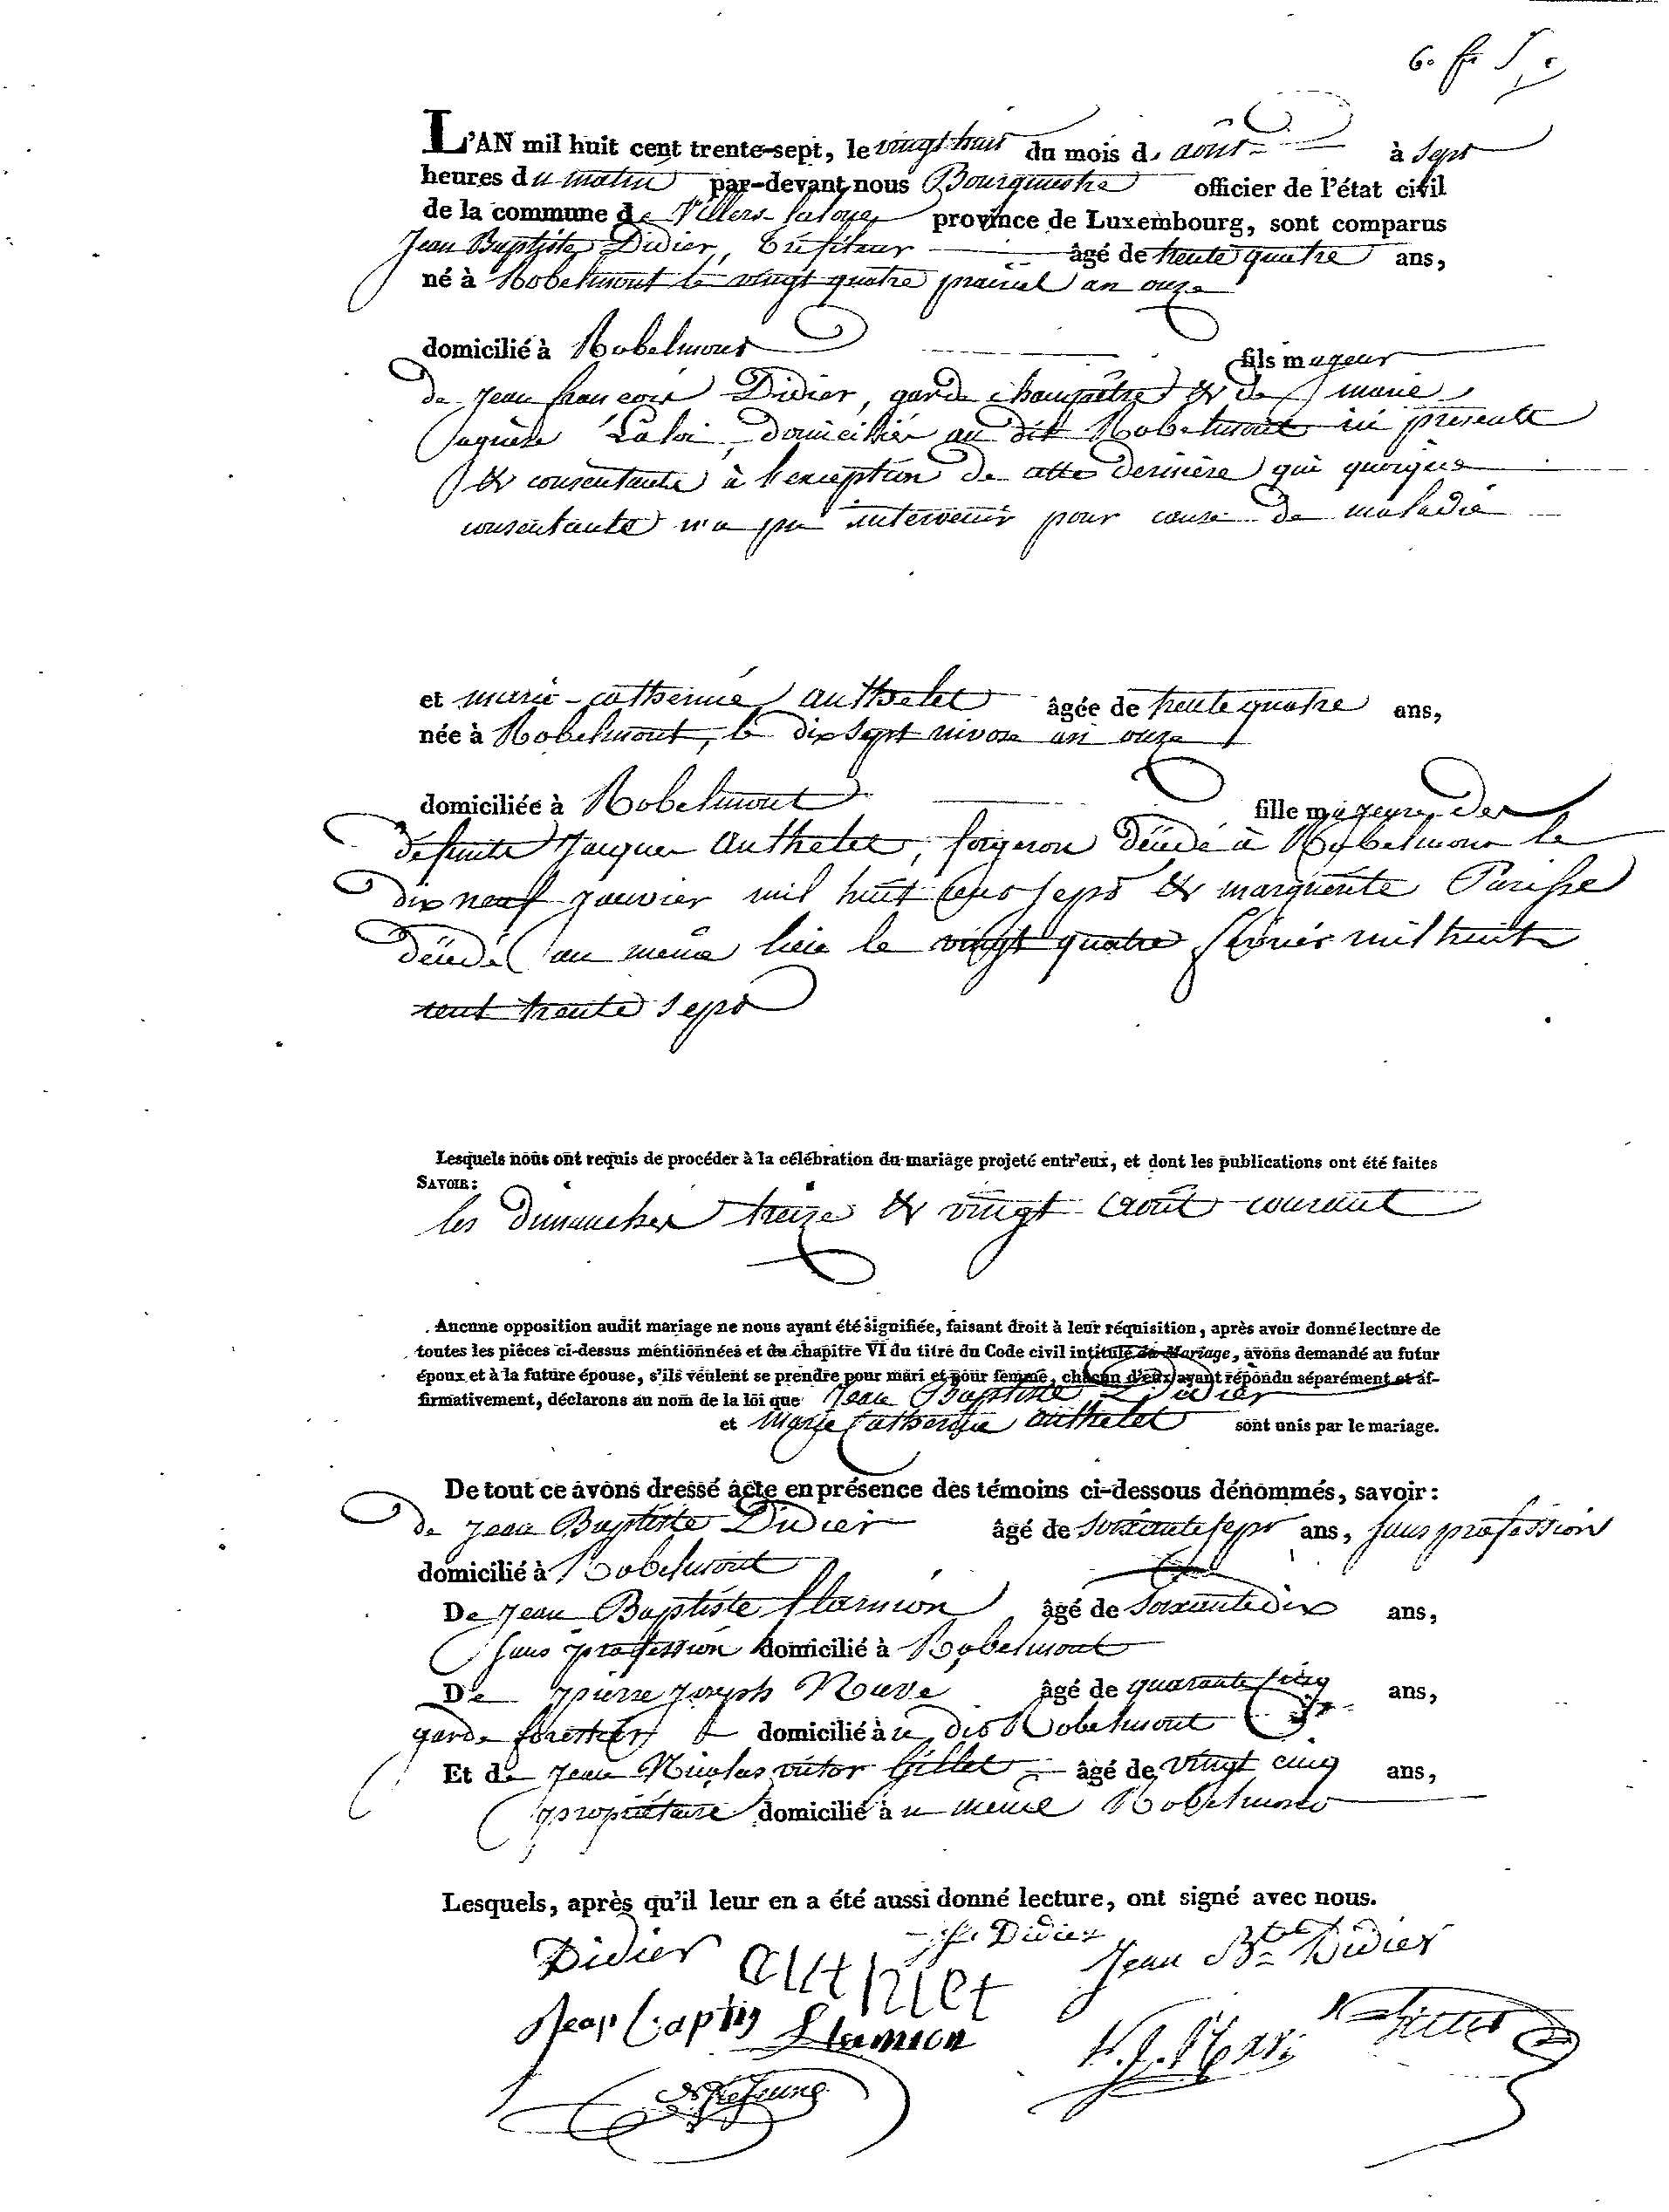 6. fr
L'AN mil huit cent trente-sept, le vingt huit du mois d'août à sept
heures du matin par-devant nous Bourguestre officier de l'état civil
de la commune de Villers laloye province de Luxembourg, sont comparus
Jean Baptiste Didier, Tréfileur âgé de trente quatre ans,
né à Robelmont le vingt quatre prairial an onze
domicilié à Robelmont fils majeur
de Jean françois Didier, garde champêtre & de marie
agnèse Laloi, domiciliés au dit Robelmont ici présents
& consentants à l'exception de cette dernière qui quoique
consentante n'a pu intervenir pour cause de maladie
et marie-catherine authelet âgée de trente quatre ans,
née à Robelmont, le dix sept nivose an onze
domiciliée à Robelmont fille majeure des
défunts Jacques authelet, forgeron décédé à Robelmont le
dix neuf janvier mil huit cent sept & marguerite Parisse
décédée au même lieu le vingt quatre février mil huit
cent trente sept
Lesquels nous ont requis de procéder à la célébration du mariage projeté entr'eux, et dont les publications ont été faites
SAVOIR:
les dimanches treize & vingt août courant
Aucune opposition audit mariage ne nous ayant été signifiée, faisant droit à leur réquisition, après avoir donné lecture de
toutes les pièces ci-dessus mentionnées et du chapitre VI du titre du Code civil intitulé du Mariage, avons demandé au futur
époux et à la future épouse, s'ils veulent se prendre pour mari et pour femme, chacun d'eux ayant répondu séparément et af-
firmativement, déclarons au nom de la loi que Jean Baptiste Didier
et Marie Catherine authelet sont unis par le mariage.
De tout ce avons dressé acte en présence des témoins ci-dessous dénommés, savoir:
de Jean Baptiste Didier âgé de soixante sept ans, sans profession
domicilié à Robelmont
De Jean Baptiste flamion âgé de soixante dix ans,
sans profession domicilié à Robelmont
De pierre joseph âgé de quarante cinq ans,
garde forestier domicilié à u dit Robelmont
Et de Jean Nicolas victor Gillet âgé de vingt cinq ans,
propriétaire domicilié à u même Robelmont
Lesquels, après qu'il leur en a été aussi donné lecture, ont signé avec nous.
Didier authlet Didier Jean Bte Didier
Jean baptis flamion Gillet